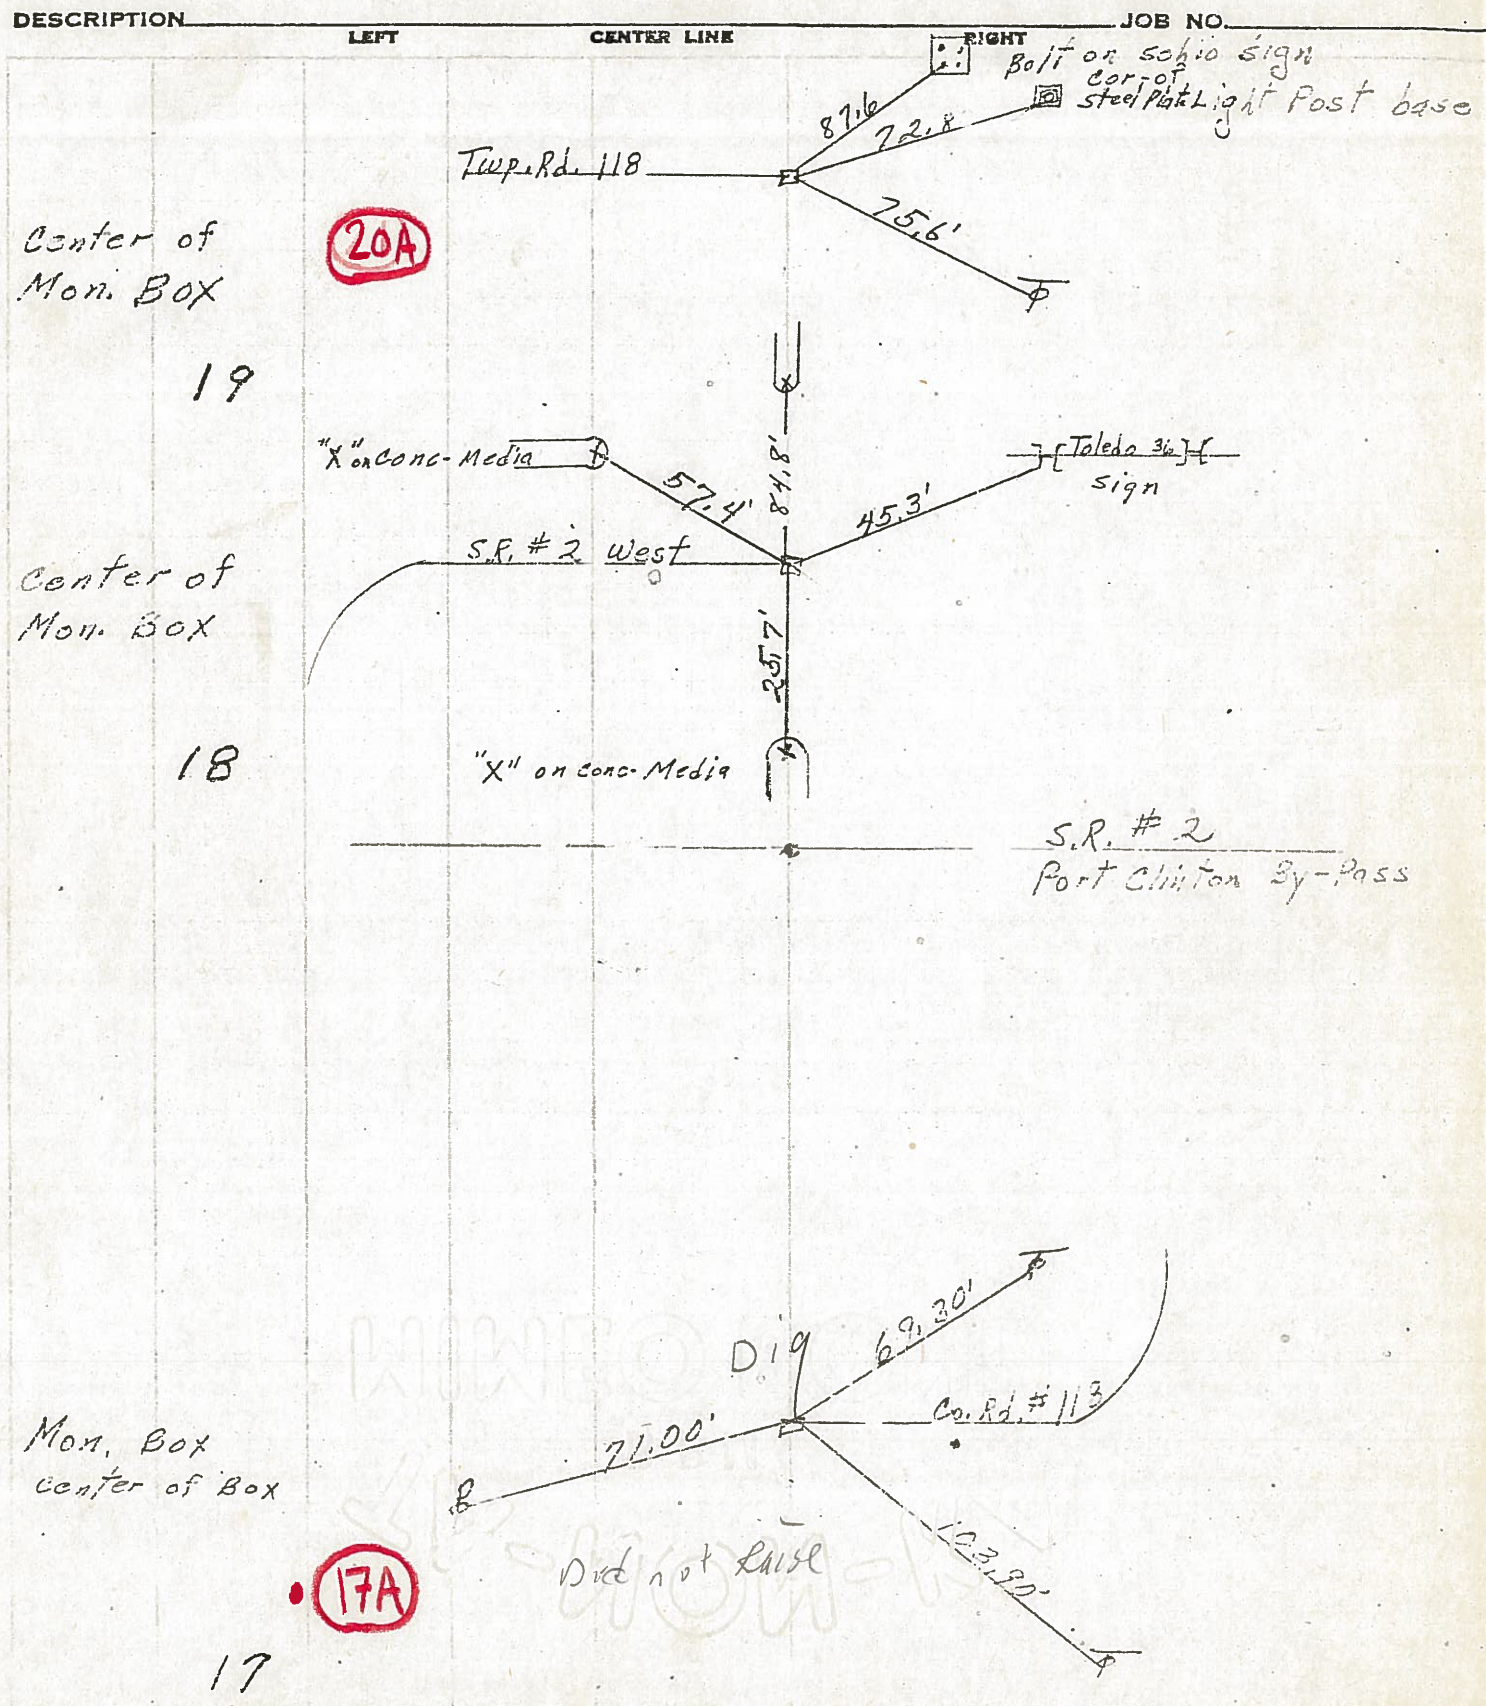 DESCRIPTION JOB NO.
LEFT CENTER LINE RIGHT
Bolt on sohio sign
cor-of
steel Plate Light Post base
87.6
72.8
Twp. Rd. 118
75.6'
Center of
Mon. Box
20A
19
"X" on conc-Media
57.4'
84.8'
45.3'
Toledo 36
sign
S.R. # 2 West
Center of
Mon. Box
25.7'
18
"X" on conc-Media
S.R. # 2
Port Clinton By-Pass
Dig
69.30'
Co. Rd. # 113
71.00'
Mon. Box
center of Box
103.90'
Did not Raise
17A
17